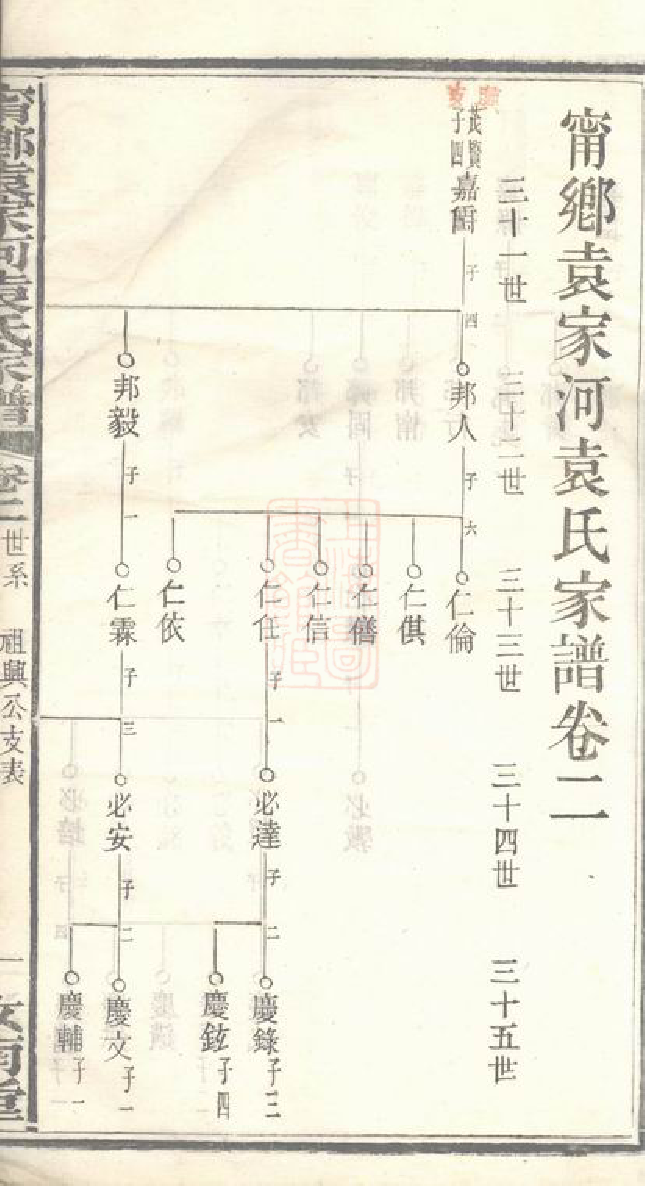 甯鄉袁家河袁氏家譜卷二
三十一世
三十二世
三十三世
三十四世
三十五世
茂賢
子四
嘉爾
子四
邦人
子六
仁倫
仁倛
仁僐
仁信
仁任
子一
必達
子二
慶錄
子三
慶鉉
子四
仁依
邦毅
子一
仁霖
子三
必安
子二
慶文
子一
慶輔
子一
甯鄉袁家河袁氏家譜
卷二
世系
祖興公支表
一